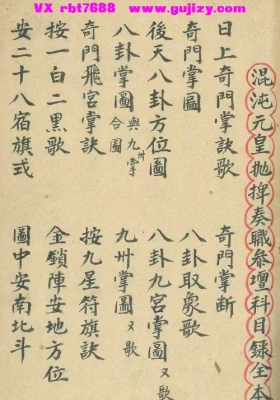 VX rbt7688 www.gujizy.com
混沌元皇抛捭奏職叅壇科目録全本
日上奇門掌訣歌
奇門掌圖
後天八卦方位圖
八卦掌圖 與九州掌合圖
奇門飛宮掌訣
按一白二黑歌
安二十八宿旗式
奇門掌断
八卦取象歌
八卦九宮掌圖 又歌
九州掌圖 又歌
按九星符旗訣
金鎖陣安地方位
圖中安南北斗